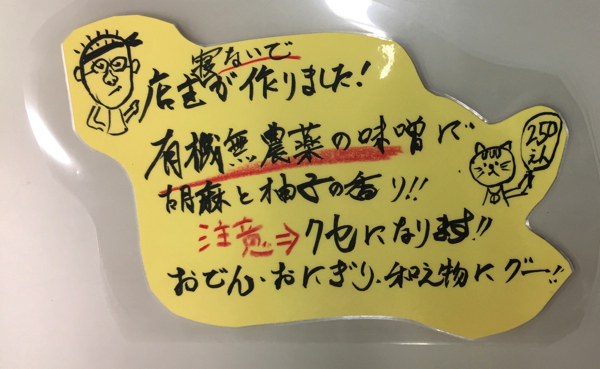 寝ないで
店主が作りました!
有機無農薬の味噌で
胡麻と柚子の香り!!
注意⇒クセになります!!
おでん・おにぎり・和え物にグー!!
250
えん